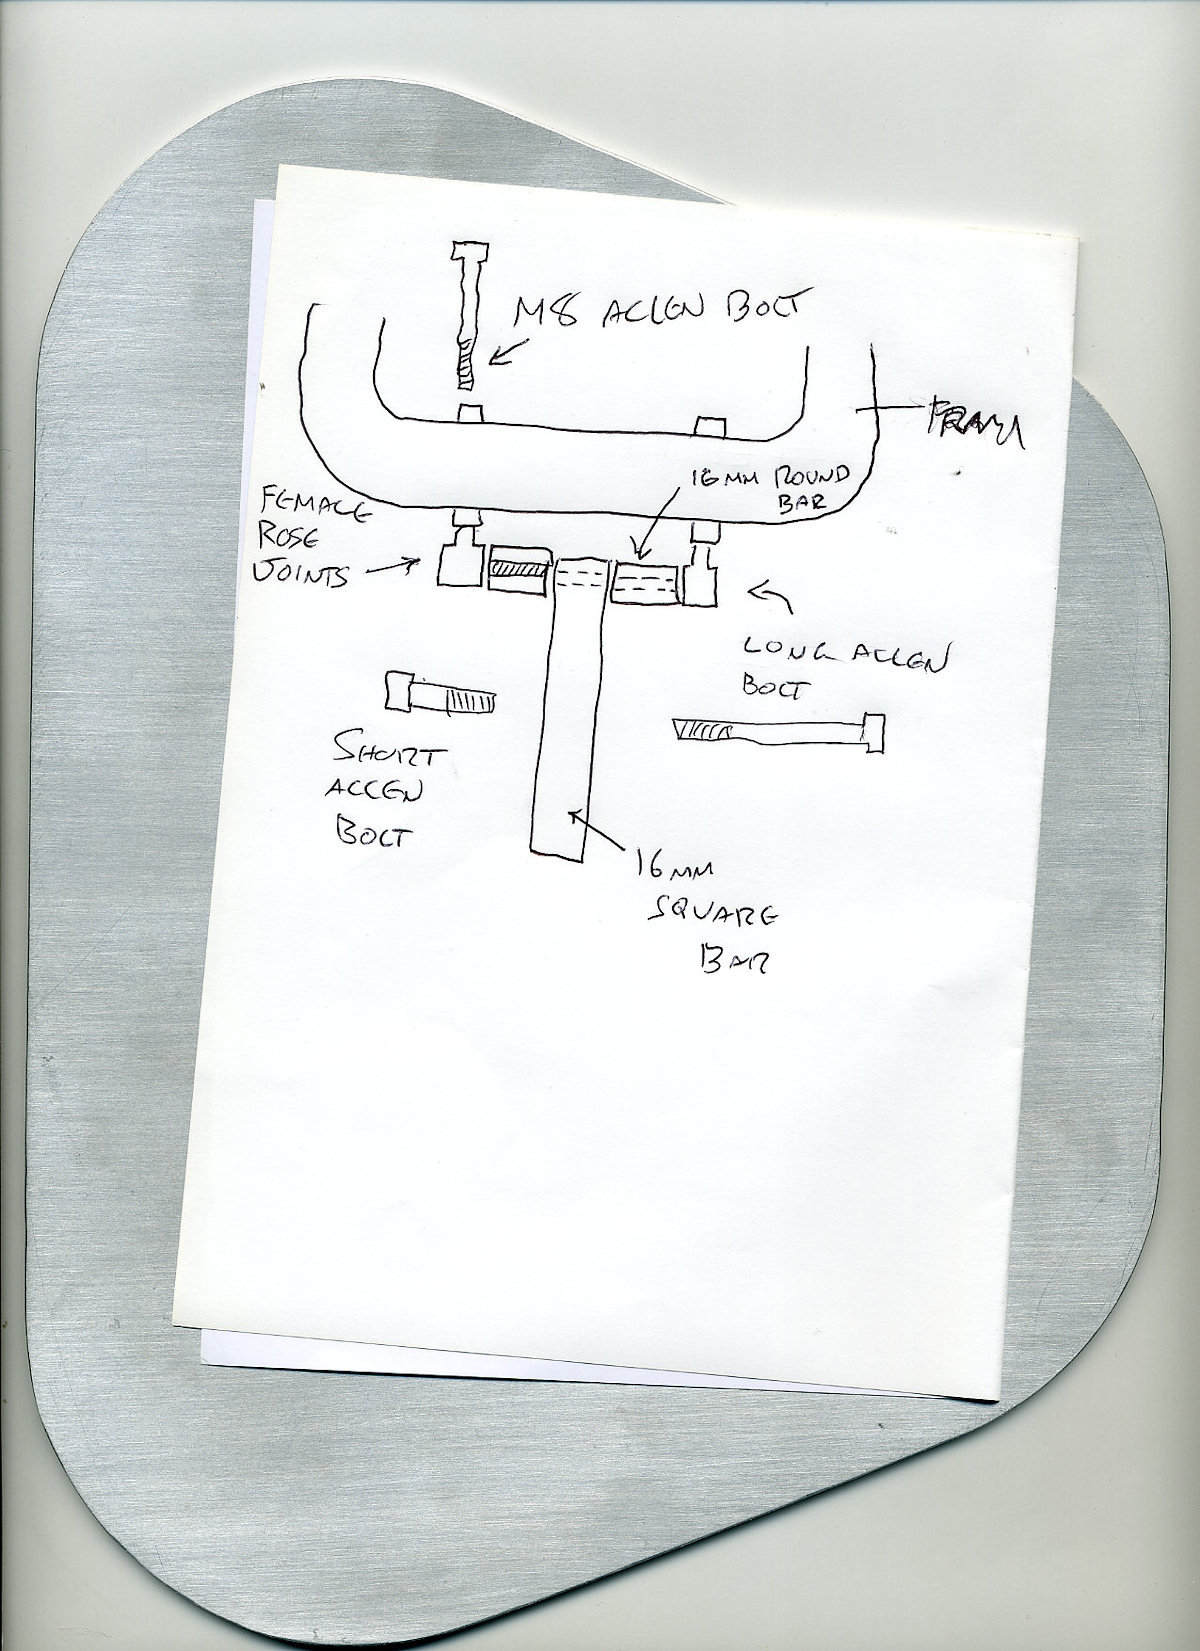 M8 ALLEN BOLT
FRAME
16 MM ROUND
BAR
FEMALE
ROSE
JOINTS
LONG ALLEN
BOLT
SHORT
ALLEN
BOLT
16 MM
SQUARE
BAR